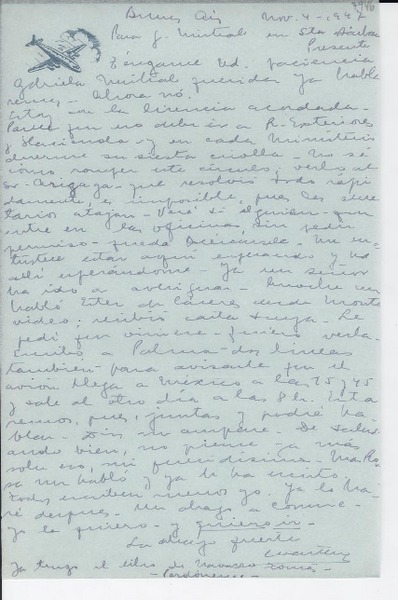 Buenos Aires Nov. 4 - 1947
Para G. Mistral en Sta Bárbara
Presente
Téngame Ud. paciencia
Gabriela Mistral querida: ya habla
remos - Ahora no.
Estoy con la licencia acordada -
y Hacienda - y en cada Ministerio
duerme su siesta criolla - No sé
cómo romper este círculo; verlo al
Sr. que resolvió todo rápi
damente, es imposible, pues los secre
tarios atajan - Veré si alguien - que
entre en las oficinas, sin pedir
permiso - pueda Me en
tristece estar aquí esperando y Ud
allí esperándome - Ya un señor
ha ido a averiguar - Anoche me
habló Ester de Cáceres desde Monte
video; recibió carta suya - Le
pedí que viniera - Quiero
a Palma - dos líneas
también - para avisarle que el
avión llega a México a las 15 y 45
y sale al otro día a las 8 h. Esta
remos, pues, juntas y podré ha
blar - Dios me ampare - De salud
ando bien, no piense - ya más
solo eso, mi
me habló y ya le ha escrito
todos escriben menos yo. Ya lo ha
ré después - Un abrazo a
yo la quiero - y quiero ir -
La abrazo fuerte
Ya tengo el libro de Navarro Tomás -
- Perdóneme -